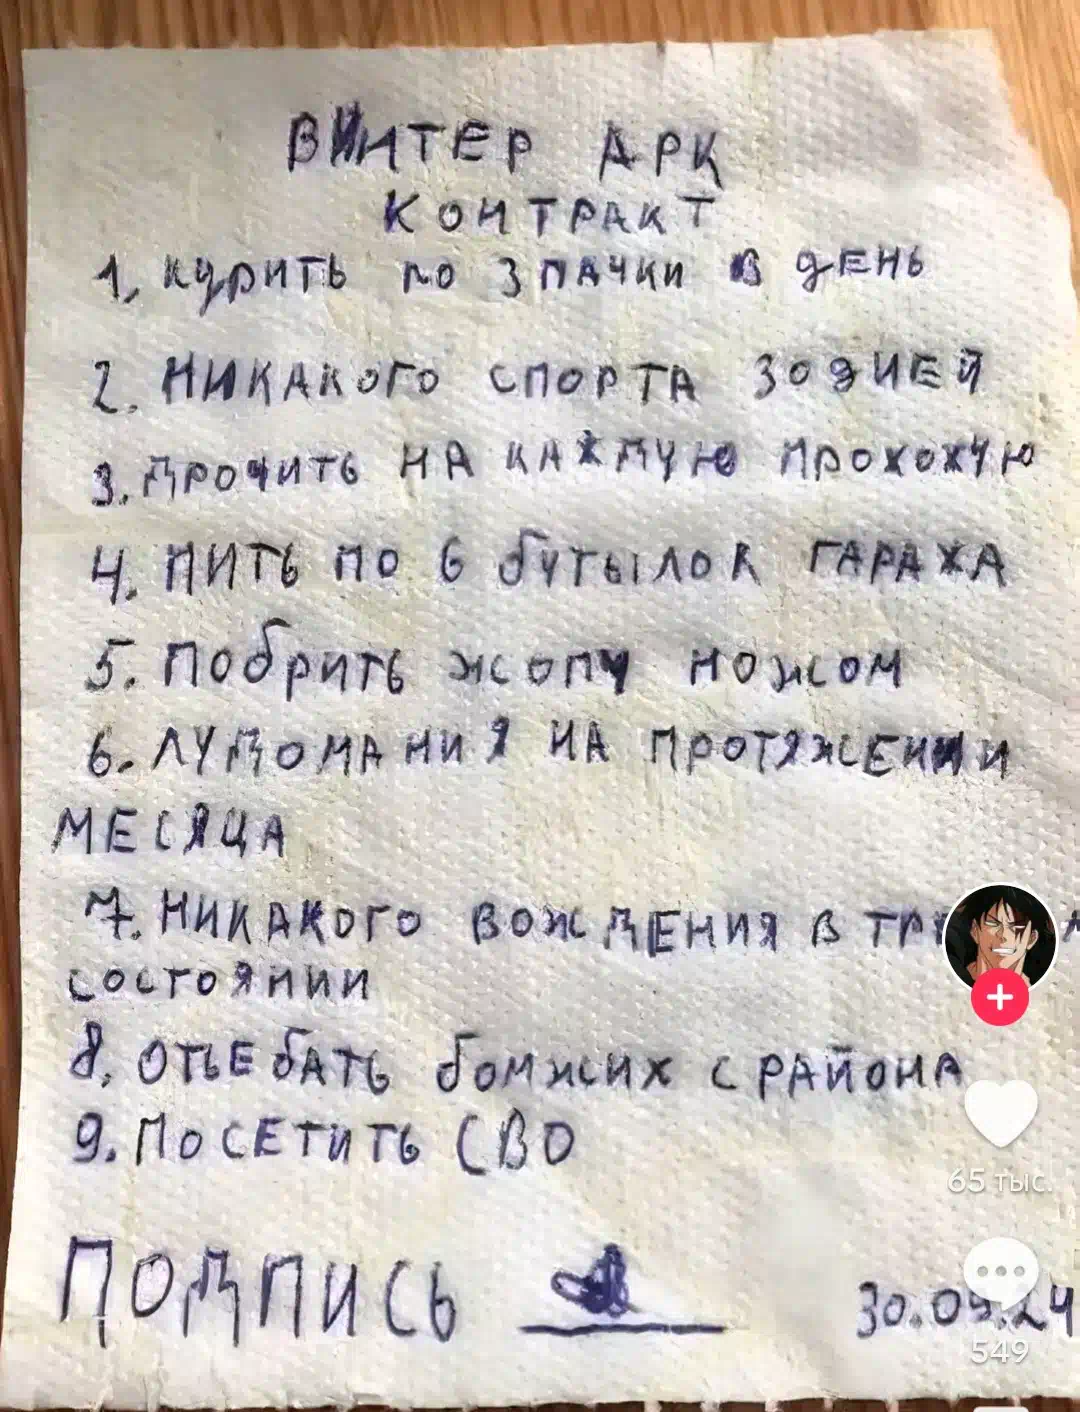 ВИНТЕР АРК
КОНТРАКТ
1. КУРИТЬ ПО 3 ПАЧКИ В ДЕНЬ
2. НИКАКОГО СПОРТА 30 ДНЕЙ
3. ДРОЧИТЬ НА КАЖДУЮ ПРОХОЖУЮ
4. ПИТЬ ПО 6 БУТЫЛОК ГАРАЖА
5. ПОБРИТЬ ЖОПУ НОЖОМ
6. ЛУДОМАНИЯ НА ПРОТЯЖЕНИИ
МЕСЯЦА
7. НИКАКОГО ВОЖДЕНИЯ В
СОСТОЯНИИ
8. ОТЬЕБАТЬ БОМЖИХ С РАЙОНА
9. ПОСЕТИТЬ СВО
65 тыс.
ПОДПИСЬ 30.09.24
549